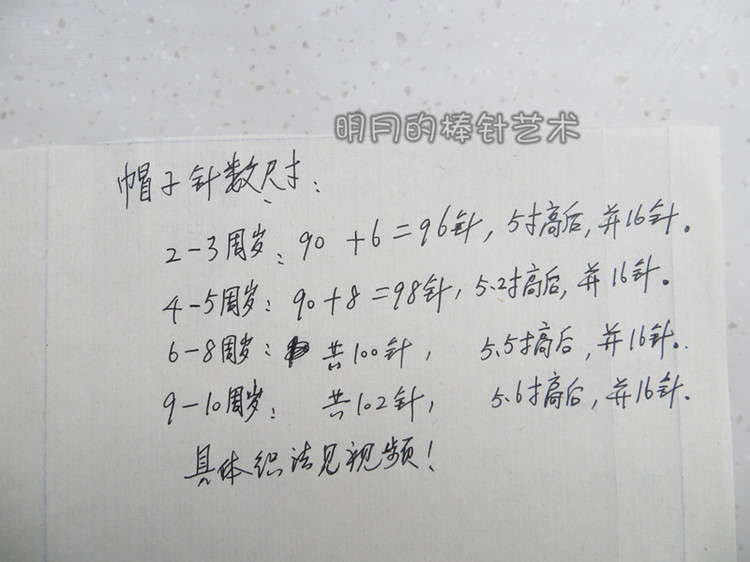 明月的棒针艺术
帽子针数尺寸:
2-3周岁: 90+6=96针, 5寸高后, 并16针。
4-5周岁: 90+8=98针, 5.2寸高后, 并16针。
6-8周岁: 共100针, 5.5寸高后, 并16针.
9-10周岁: 共102针, 5.6寸高后, 并16针.
具体织法见视频!